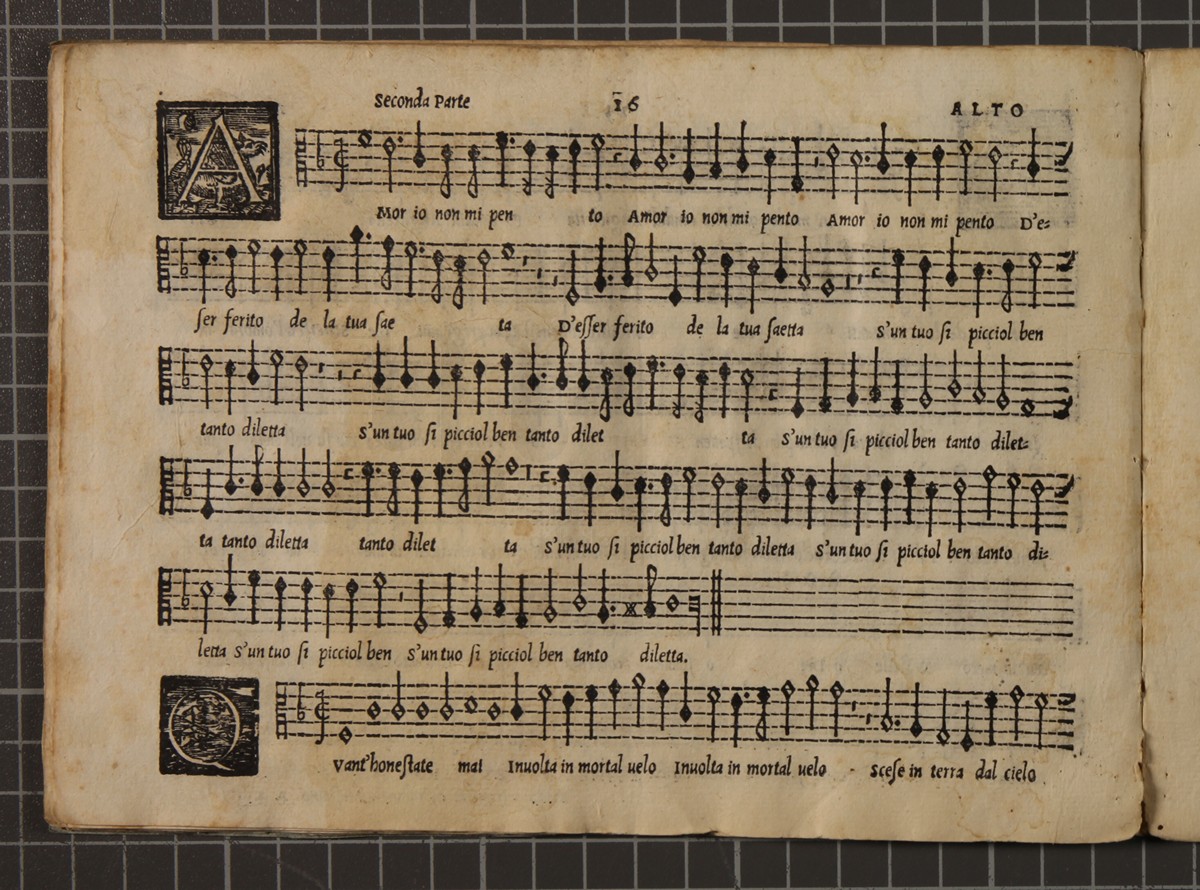 Seconda Parte 16 ALTO
AMor io non mi pen to Amor io non mi pento Amor io non mi pento D'e=
ſer ferito de la tua ſae ta D'eſſer ferito de la tua ſaetta S'un tuo ſi picciol ben
tanto diletta S'un tuo ſi picciol ben tanto dilet ta S'un tuo ſi picciol ben tanto dilet=
ta tanto diletta tanto dilet ta S'un tuo ſi picciol ben tanto diletta S'un tuo ſi picciol ben tanto di=
letta S'un tuo ſi picciol ben S'un tuo ſi picciol ben tanto diletta.
QVant'honeſtate mai Inuolta in mortal uelo Inuolta in mortal uelo Sceſe in terra dal cielo